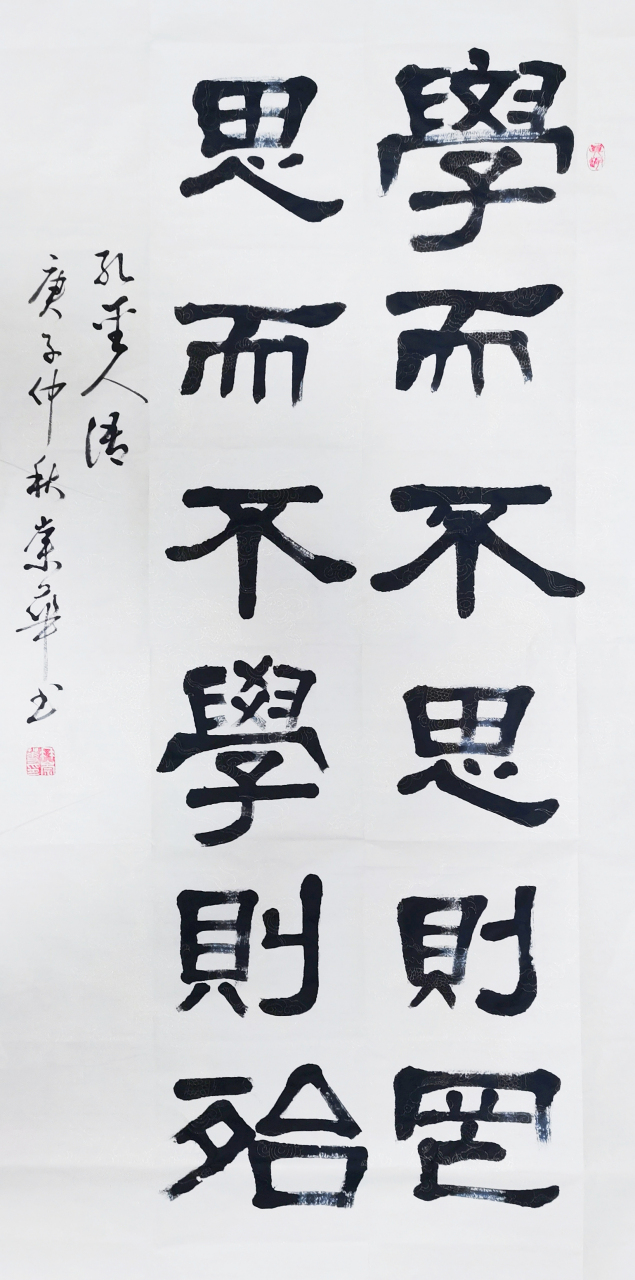 學而不思則罔
思而不學則殆
孔聖人語
庚子仲秋崇華书